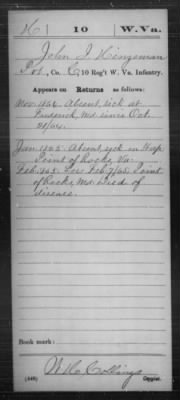 H | 10 | W.Va.
John J. Hinzeman
Pvt., Co. E, 10 Reg't W. Va. Infantry.
Appears on Returns as follows:
Nov. 1864. Absent, sick at
Frederick, Md. since Oct.
Jan. 1865. Absent, sick in Hosp.
Point of Rocks, Va.
Feb. 1865. Feb. 7/65. Point
of Rocks, Md. Died of
disease.
Book mark:
Collings
(546) Copyist.